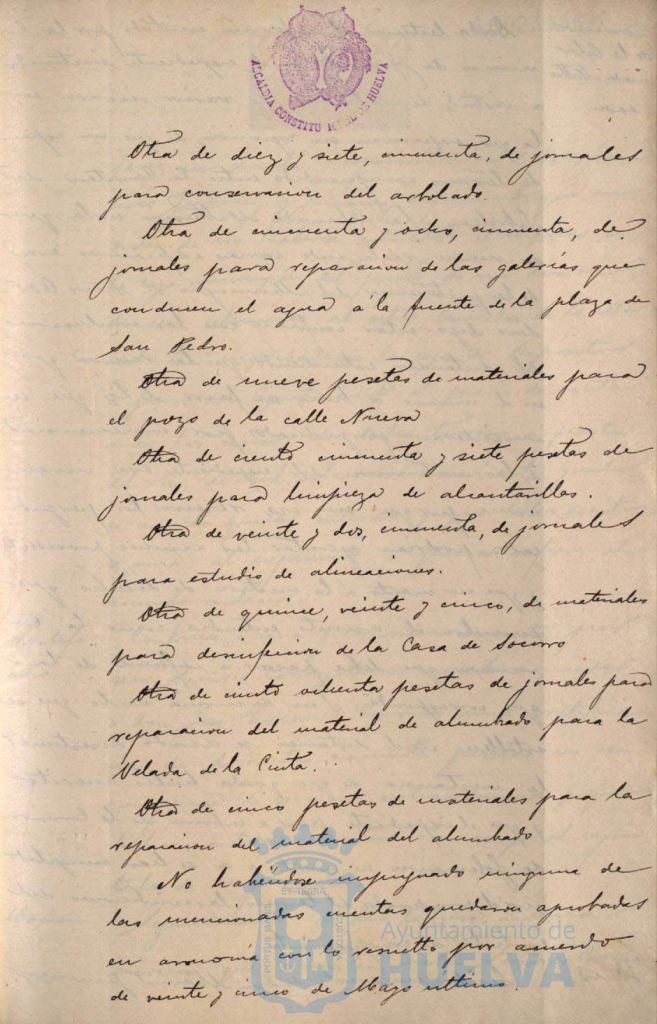 ALCALDIA CONSTITUCIONAL DE HUELVA
Otra de diez y siete, cincuenta, de jornales
para conservacion del arbolado.
Otra de cincuenta y ocho, cincuenta, de
jornales para reparacion de las galerías que
conducen el agua á la fuente de la plaza de
San Pedro.
Otra de nueve pesetas de materiales para
el pozo de la calle Nueva
Otra de ciento cincuenta y siete pesetas de
jornales para limpieza de alcantarillas.
Otra de veinte y dos, cincuenta, de jornales
para estudio de alineaciones.
Otra de quince, veinte y cinco, de materiales
para desinfeccion de la Casa de Socorro
Otra de ciento ochenta pesetas de jornales para
reparacion del material de alumbrado para la
Velada de la Cinta.
Otra de cinco pesetas de materiales para la
reparacion del material del alumbrado
No habiéndose impugnado ninguna de
las mencionadas cuentas quedaron aprobadas
en armonía con lo resuelto por acuerdo
de veinte y cinco de Mayo ultimo.
Ayuntamiento de
HUELVA